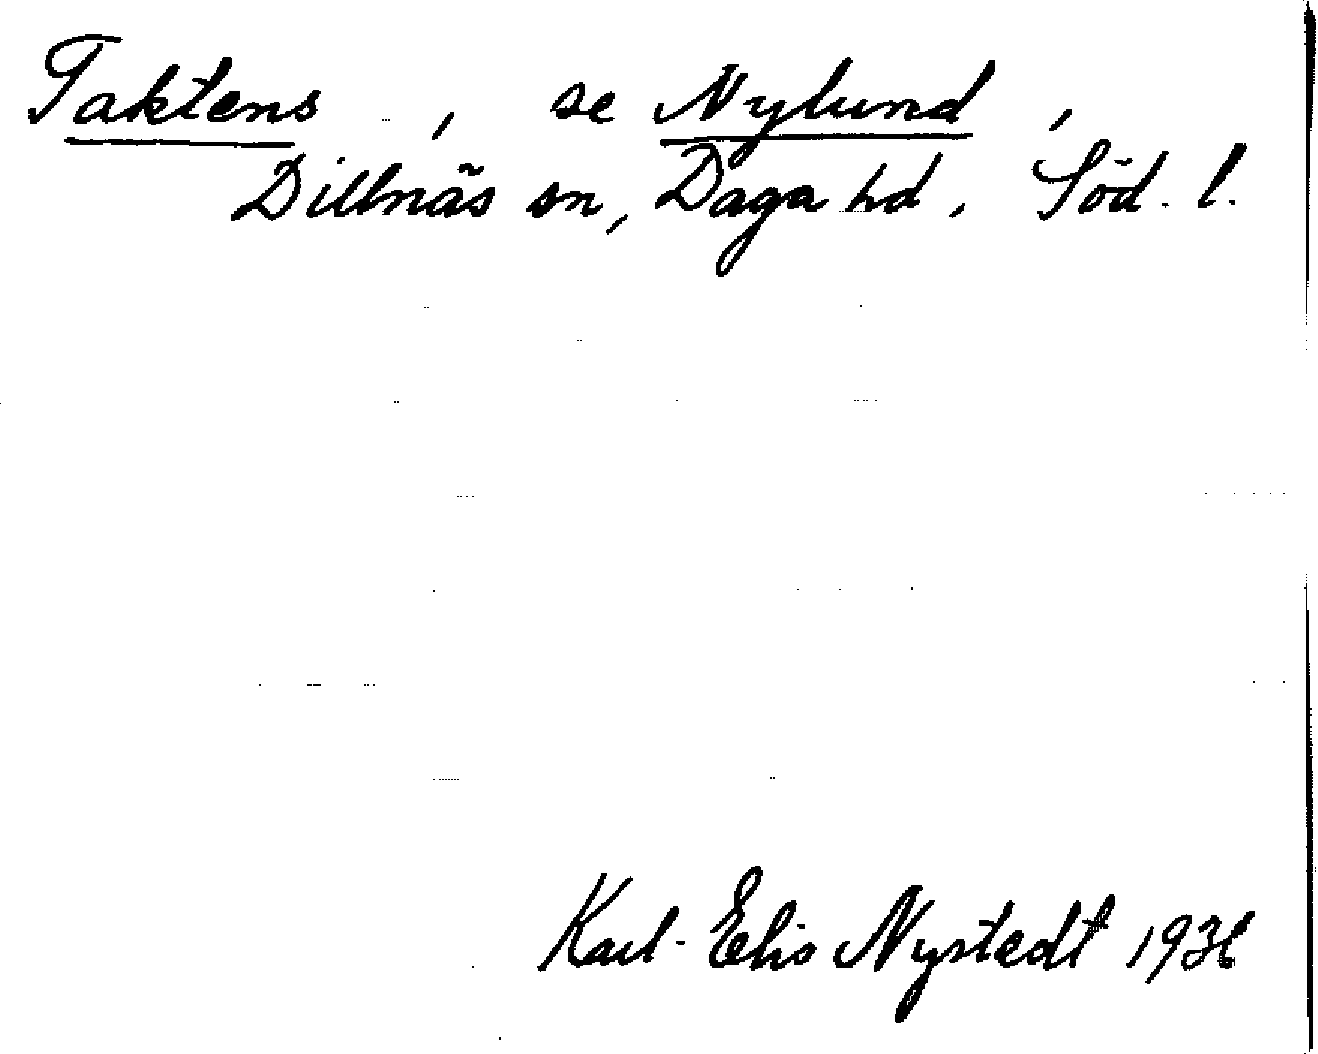 Taktens, se Nylund,
Dillnäs sn, Daga hd, Söd. l.
Karl-Elis Nystedt 1936